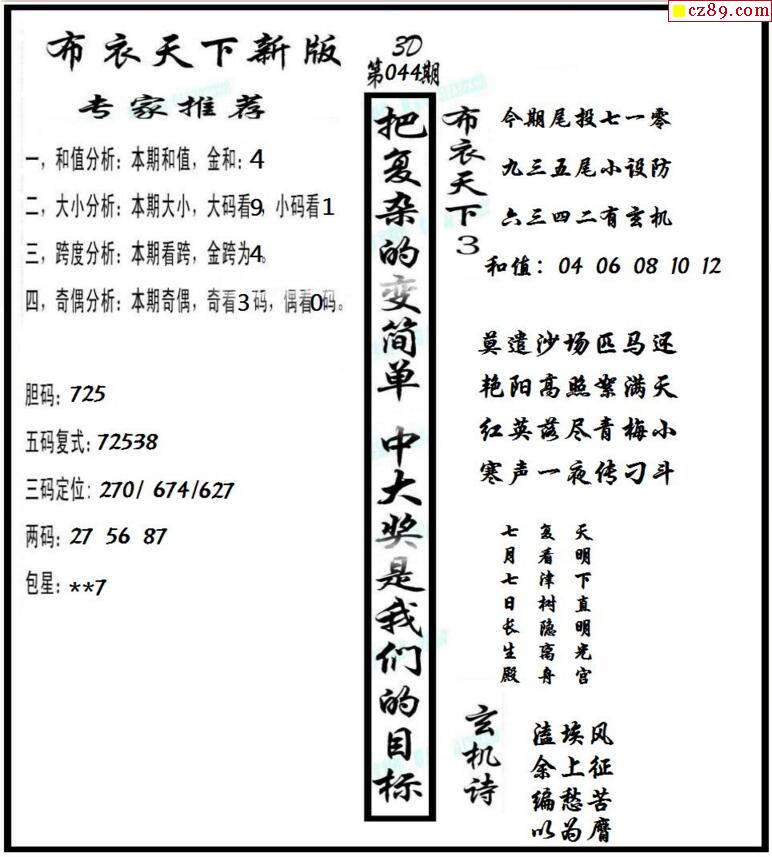 cz89.com
布衣天下新版
专家推荐
一，和值分析：本期和值，金和：4
二，大小分析：本期大小，大码看9，小码看1
三，跨度分析：本期看跨，金跨为4。
四，奇偶分析：本期奇偶，奇看3码，偶看0码。
胆码：725
五码复式：72538
三码定位：270/ 674/627
两码：27 56 87
包星：**7
3D
第044期
把复杂的变简单 中大奖是我们的目标
布衣天下3
今期尾投七一零
九三五尾小设防
六三四二有玄机
和值：04 06 08 10 12
莫遣沙场匹马还
艳阳高照絮满天
红英落尽青梅小
寒声一夜传刁斗
天明下直明光宫
复看津树隐离舟
七月七日长生殿
玄机诗
溘埃风
余上征
编愁苦
以为膺